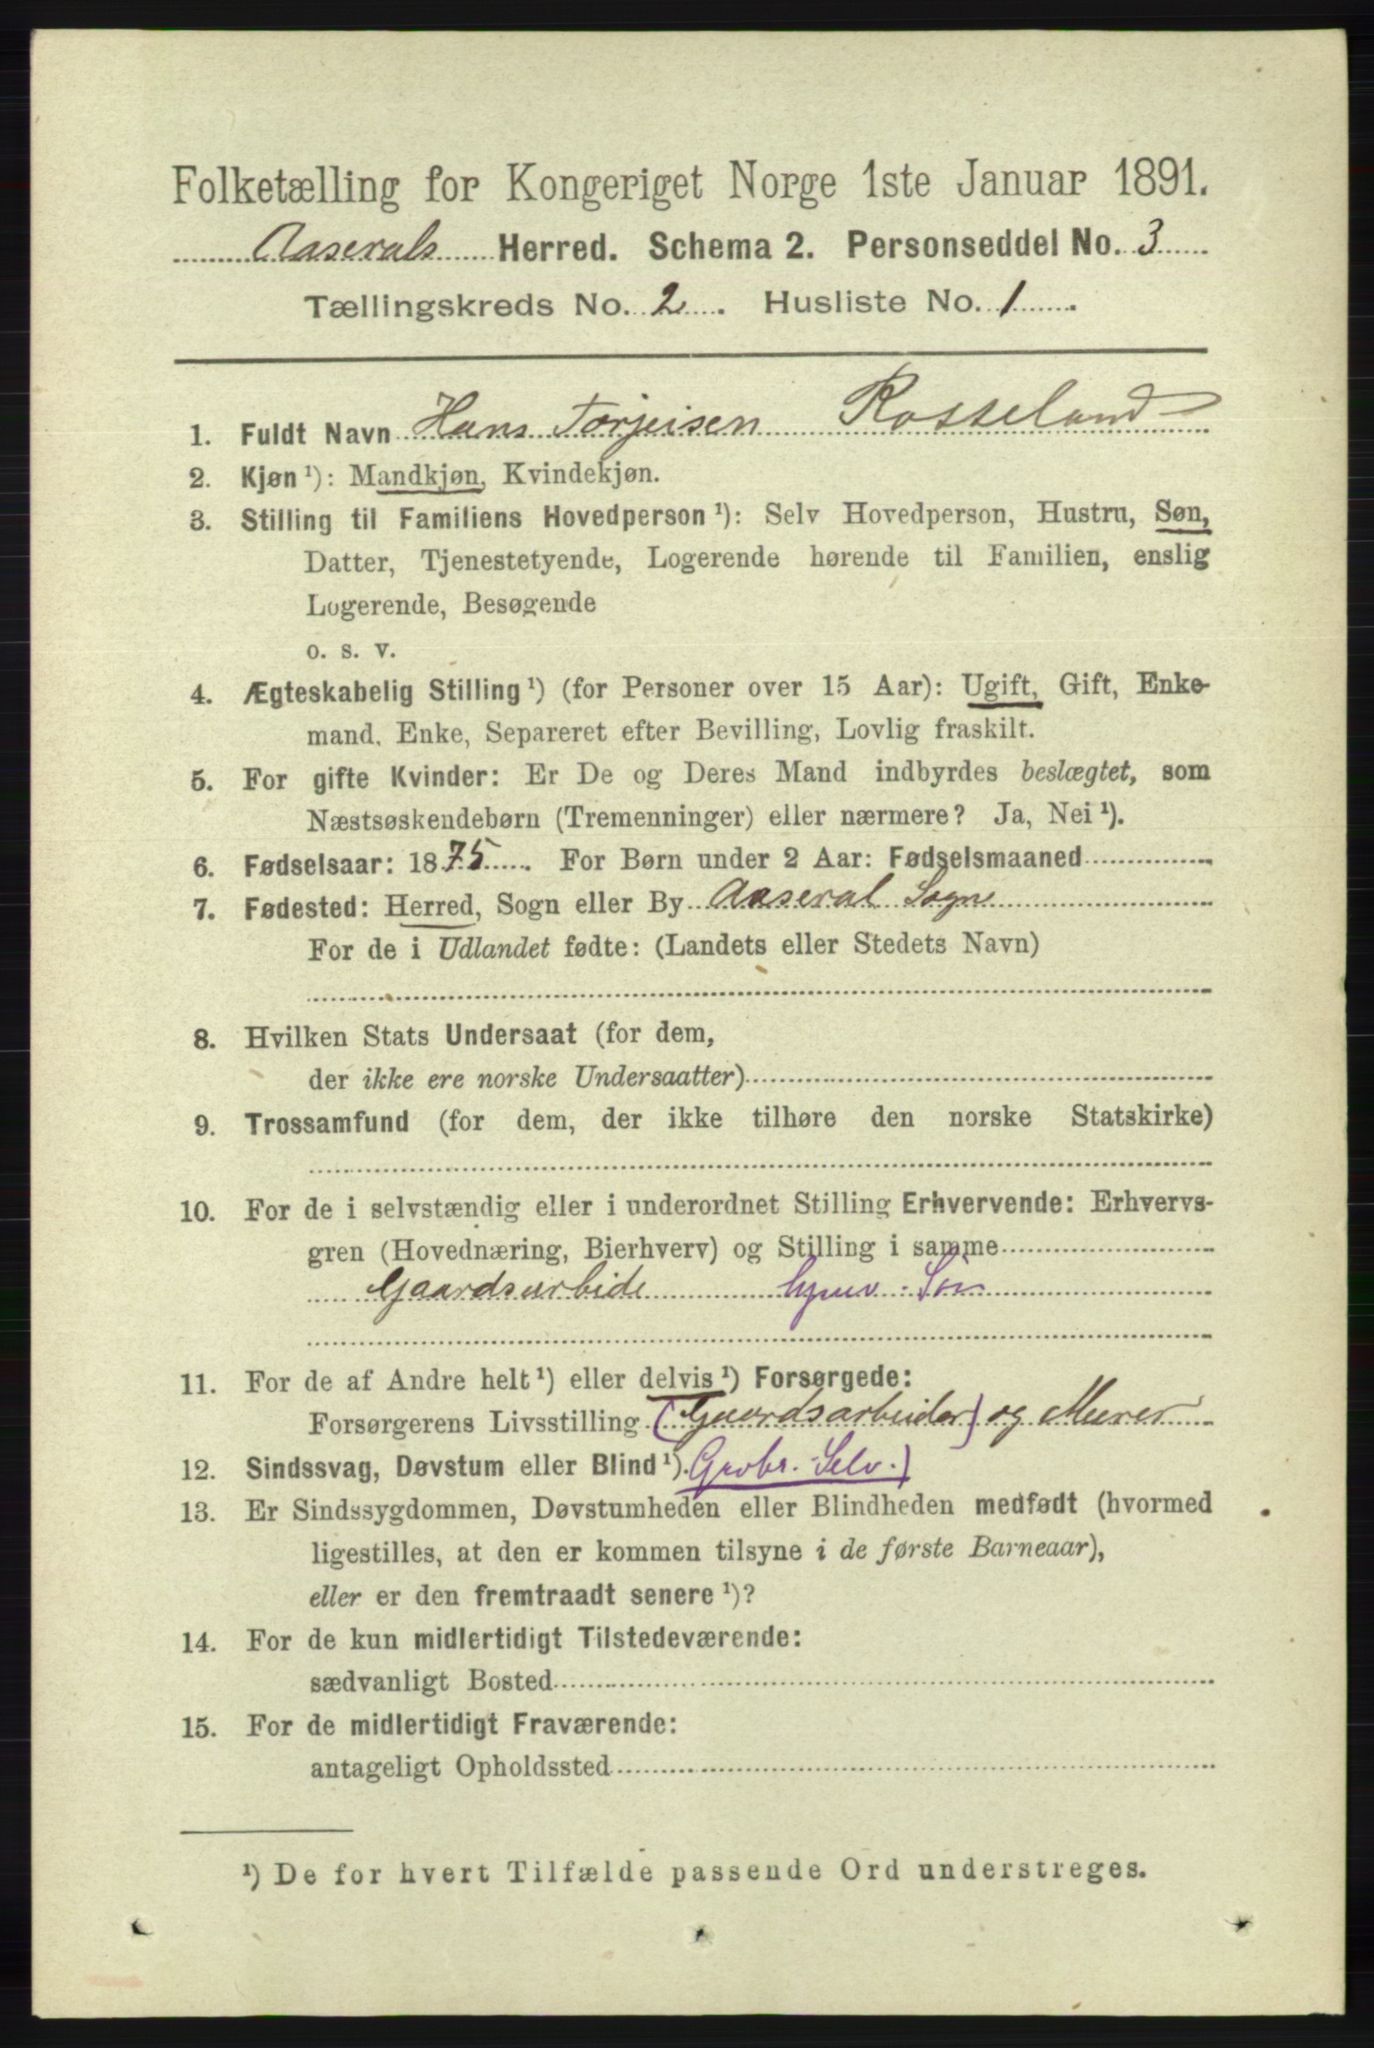 Folketælling for Kongeriget Norge 1ste Januar 1891.
Aaserals Herred. Schema 2. Personseddel No. 3
Tællingskreds No. 2. Husliste No. 1.
1. Fuldt Navn Hans Torjeisen Rosseland
2. Kjøn ¹): Mandkjøn, Kvindekjøn.
3. Stilling til Familiens Hovedperson ¹): Selv Hovedperson, Hustru, Søn,
Datter, Tjenestetyende, Logerende hørende til Familien, enslig
Logerende, Besøgende
o. s. v.
4. Ægteskabelig Stilling ¹) (for Personer over 15 Aar): Ugift, Gift, Enke-
mand, Enke, Separeret efter Bevilling, Lovlig fraskilt.
5. For gifte Kvinder: Er De og Deres Mand indbyrdes beslægtet, som
Næstsøskendebørn (Tremenninger) eller nærmere? Ja, Nei ¹).
6. Fødselsaar: 1875. For Børn under 2 Aar: Fødselsmaaned
7. Fødested: Herred, Sogn eller By Aaseral Sogn
For de i Udlandet fødte: (Landets eller Stedets Navn)
8. Hvilken Stats Undersaat (for dem,
der ikke ere norske Undersaatter)
9. Trossamfund (for dem, der ikke tilhøre den norske Statskirke)
10. For de i selvstændig eller i underordnet Stilling Erhvervende: Erhvervs-
gren (Hovednæring, Bierhverv) og Stilling i samme
Gaardsarbide Søn
11. For de af Andre helt ¹) eller delvis ¹) Forsørgede:
Forsørgerens Livsstilling (Gaardsarbeider) og Murer
12. Sindssvag, Døvstum eller Blind ¹). Grdbr. Selv.)
13. Er Sindssygdommen, Døvstumheden eller Blindheden medfødt (hvormed
ligestilles, at den er kommen tilsyne i de første Barneaar),
eller er den fremtraadt senere ¹)?
14. For de kun midlertidigt Tilstedeværende:
sædvanligt Bosted
15. For de midlertidigt Fraværende:
antageligt Opholdssted
¹) De for hvert Tilfælde passende Ord understreges.